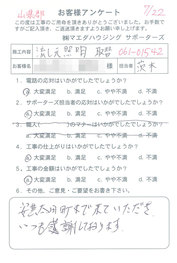 山県郡
7/22
お客様アンケート
この度は工事のご用命を頂きありがとうございました。お手数で
すがご記入頂き、ご返送頂きますようお願い申し上げます。
㈱マエダハウジング サポーターズ
工事内容 流し元照明 取替 061-015742
お名前 様 担当 茨木
1. 電話の応対はいかがでしたでしょうか?
a.大変満足 b.満足 c.やや不満 d.不満
2. サポーターズ担当者の応対はいかがでしたでしょうか?
a.大変満足 b.満足 c.やや不満 d.不満
3. 職人のマナーはいかがでしたでしょうか?
a.大変満足 b.満足 c.やや不満 d.不満
4. 工事の仕上がりはいかがでしたでしょうか?
a.大変満足 b.満足 c.やや不満 d.不満
5. 工事の金額はいかがでしたでしょうか?
a.大変満足 b.満足 c.やや不満 d.不満
6. その他、ご意見・ご要望をお書き下さい。
安芸太田町まで来ていただき
いつも感謝しております